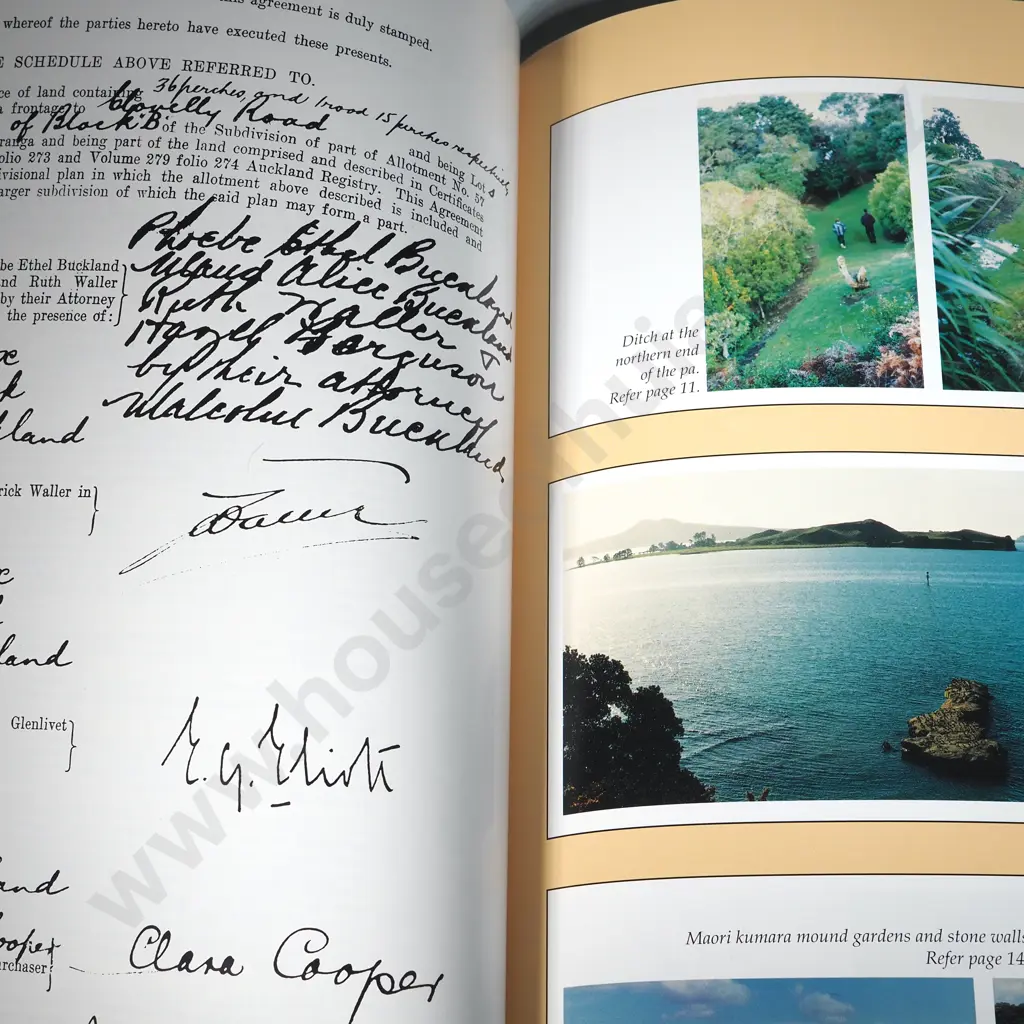 this agreement is duly stamped.
whereof the parties hereto have executed these presents.
SCHEDULE ABOVE REFERRED TO.
36 perches, and 1 rood 15 perches respectively
ce of land containing
a frontage to Clovelly Road and being Lot 4
of Block "B" of the Subdivision of part of Allotment No. 57
ranga and being part of the land comprised and described in Certificates
olio 273 and Volume 279 folio 274 Auckland Registry. This Agreement
ivisional plan in which the allotment above described is included and
arger subdivision of which the said plan may form a part.
be Ethel Buckland
and Ruth Waller
by their Attorney
the presence of:
Phoebe Ethel Buckland,
Maud Alice Buckland
Ruth Waller &
Hazell Ferguson
by their attorney
Malcolm Buckland
land
rick Waller in
land
Glenlivet
E. G. Eliott
land
Cooper
rchaser
Clara Cooper
Ditch at the
northern end
of the pa.
Refer page 11.
Maori kumara mound gardens and stone walls
Refer page 14